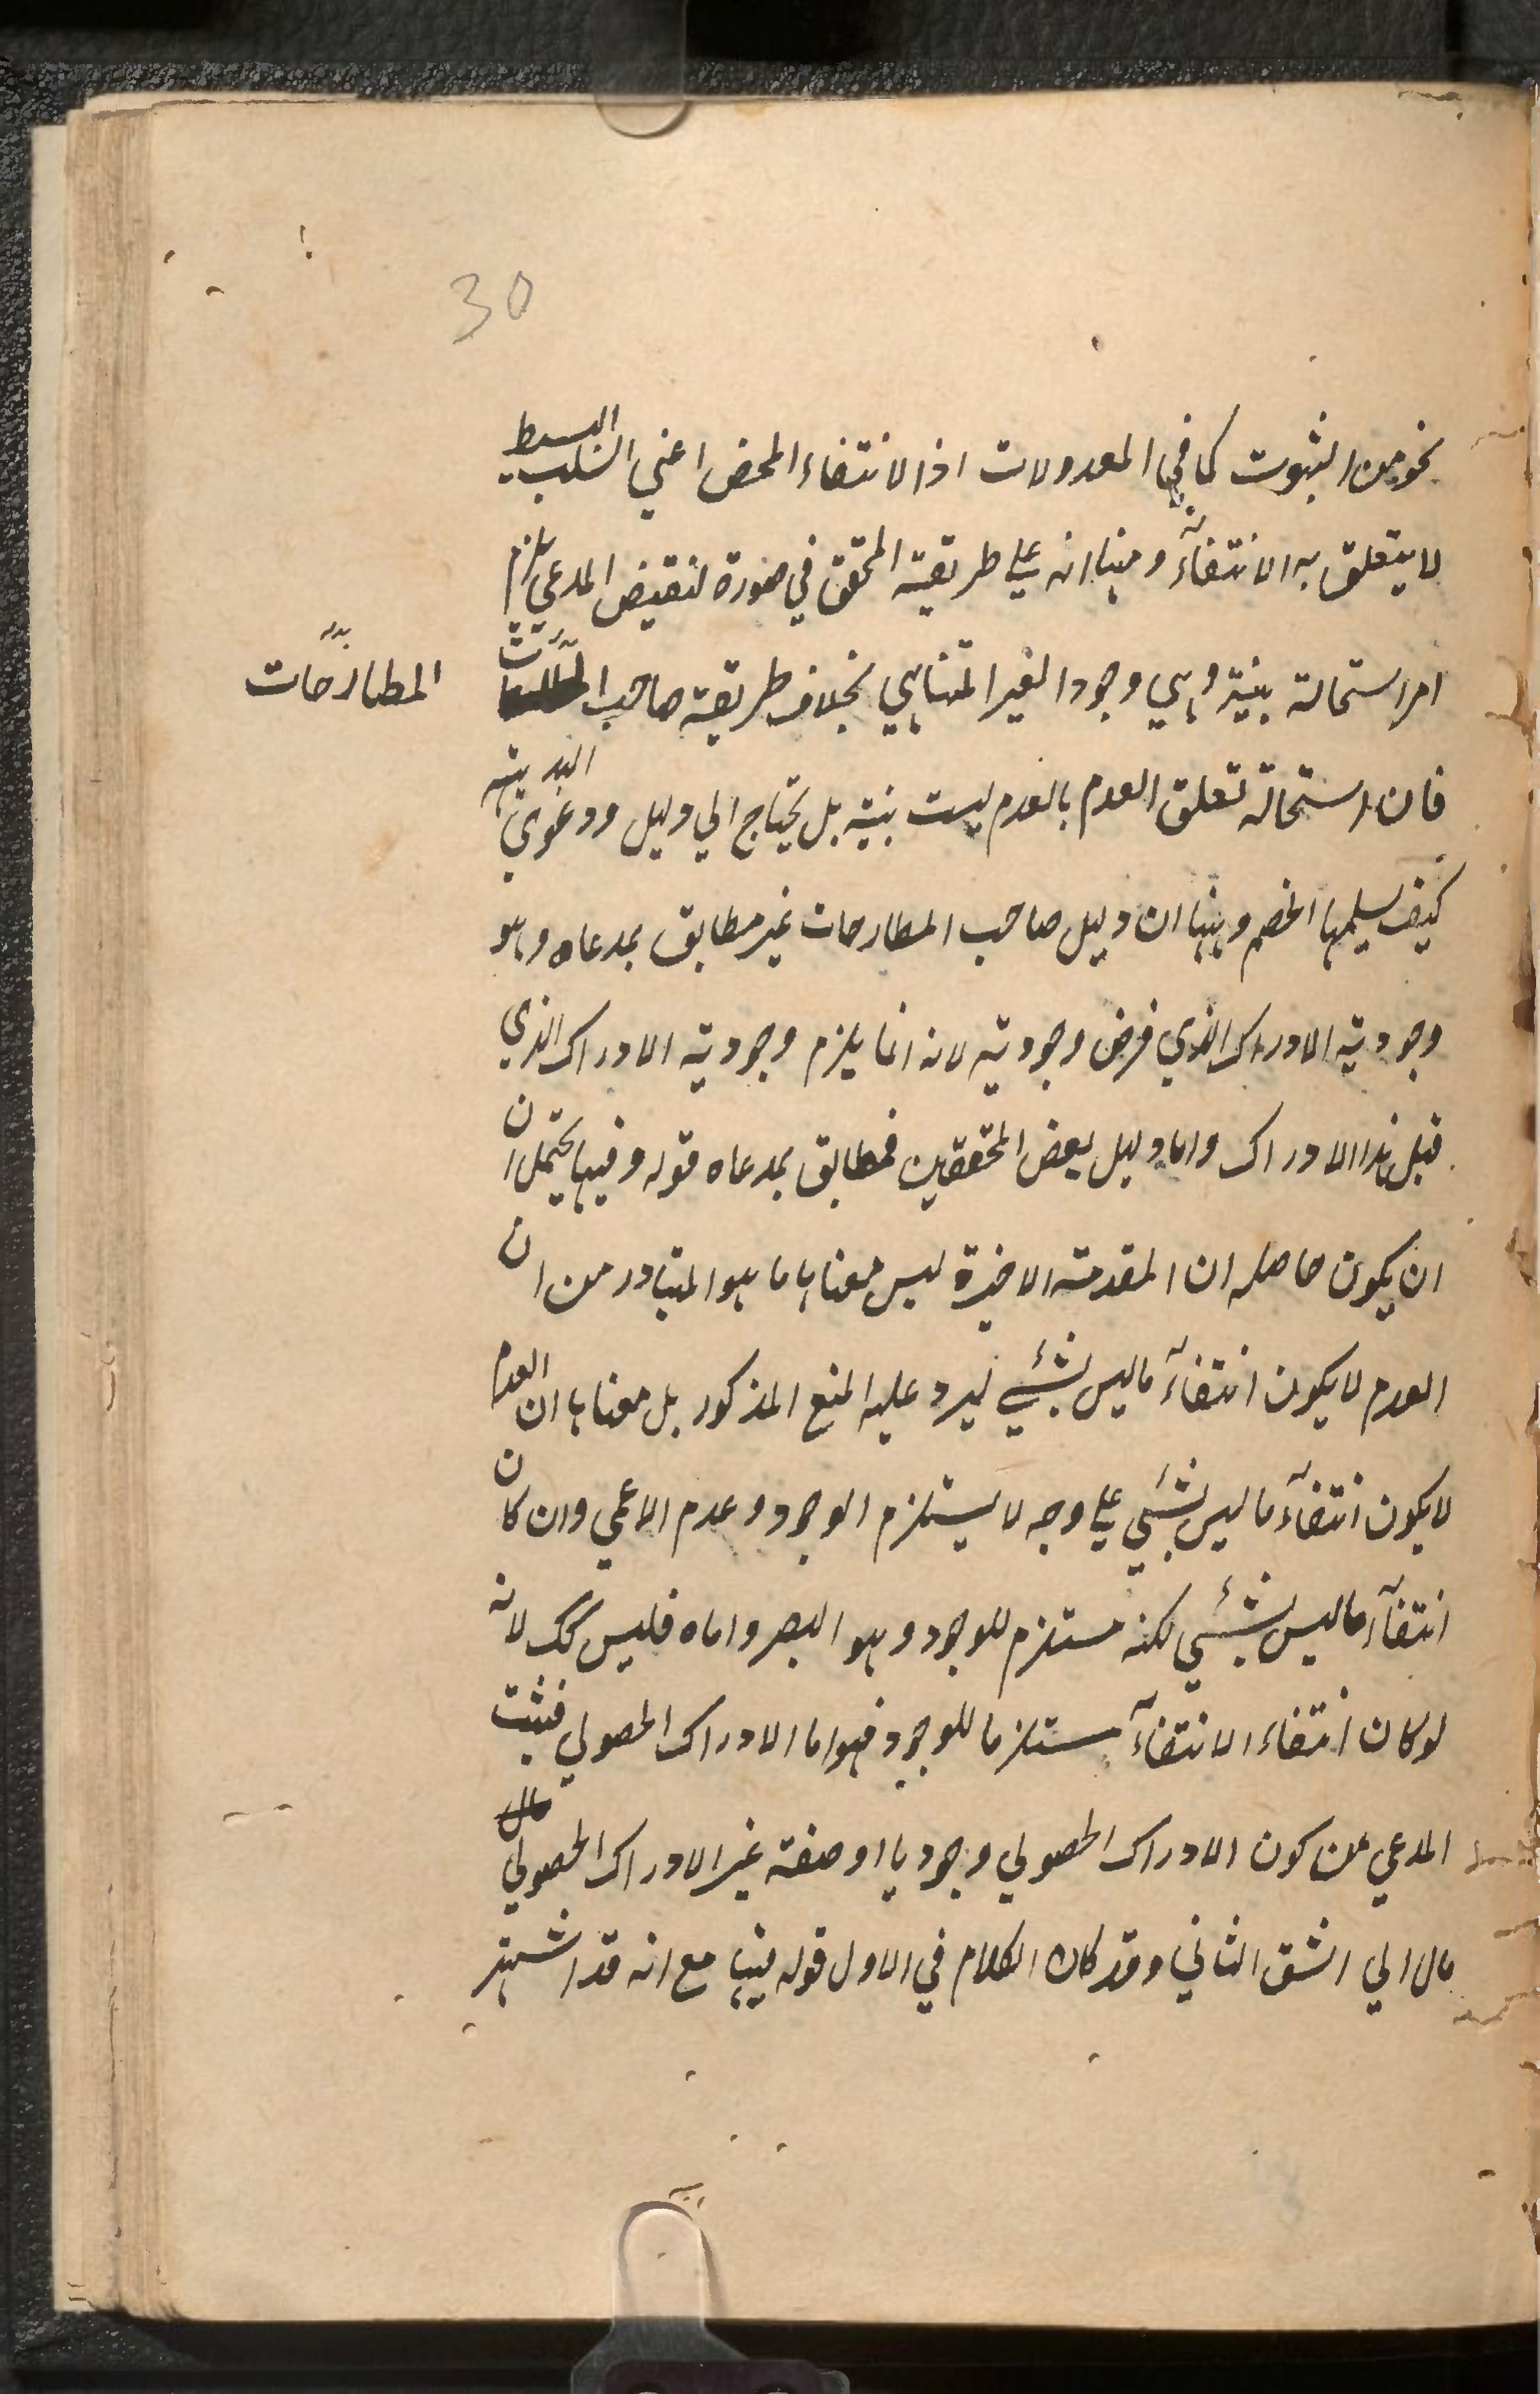 30
نحو من الثبوت كما في المعدولات اذ الانتفاء المحض اعني السلب البسيط
لا يتعلق به الانتفاء ومنها انه علي طريقة المحقق في صورة لنقيض المدعي يلزم
امر استحالة بينة وهي وجود الغير المتناهي بخلاف طريقة صاحب
المطارحات
فان استحالة تعلق العدم بالعدم ليست بينة بل يحتاج الي دليل ودعوي البديهة
كيف يسلمها الخصم ومنها ان دليل صاحب المطارحات غير مطابق بمدعاه وهو
وجودية الادراك الذي فرض وجودية لانه انما يلزم وجودية الادراك الذي
قبل هذا الادراك واما دليل بعض المحققين فمطابق بمدعاه قوله وفيها يحتمل ان
ان يكون حاصله ان المقدمة الاخيرة ليس معناها ما هو المتبادر من ان
العدم لا يكون انتفاء ما ليس بشيء ليرد عليه المنع المذكور بل معناها ان العدم
لا يكون انتفاء ما ليس بشيء علي وجه لا يستلزم الوجود وعدم الاعمي وان كان
انتفاء ما ليس بشيء لكنه مستلزم للوجود وهو البصر واما ه فليس كك لانه
لو كان انتفاء الانتفاء مستلزما للوجود فهو اما الادراك الحصولي فيثبت
المدعي من كون الادراك الحصولي وجوديا او صفة غير الادراك الحصولي
مال الي الشق الثاني وقد كان الكلام في الاول قوله فيها مع انه قد اشتهر